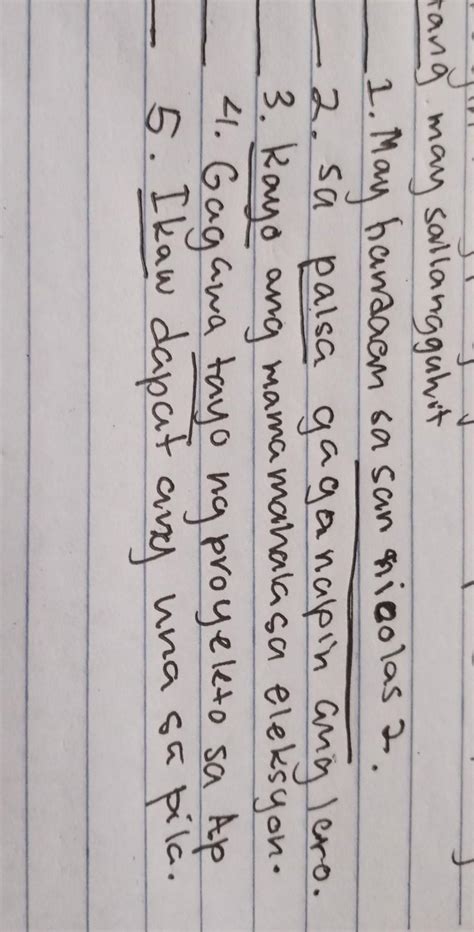 tang may sallangguhit
1. May handaan sa san nicolas 2.
2. sa palsa gaganalpin ang laro.
3. Kayo ang mamamahala sa eleksyon.
4. Gagawa tayo ng proyekto sa Ap
5. Ikaw dapat ang una sa pila.